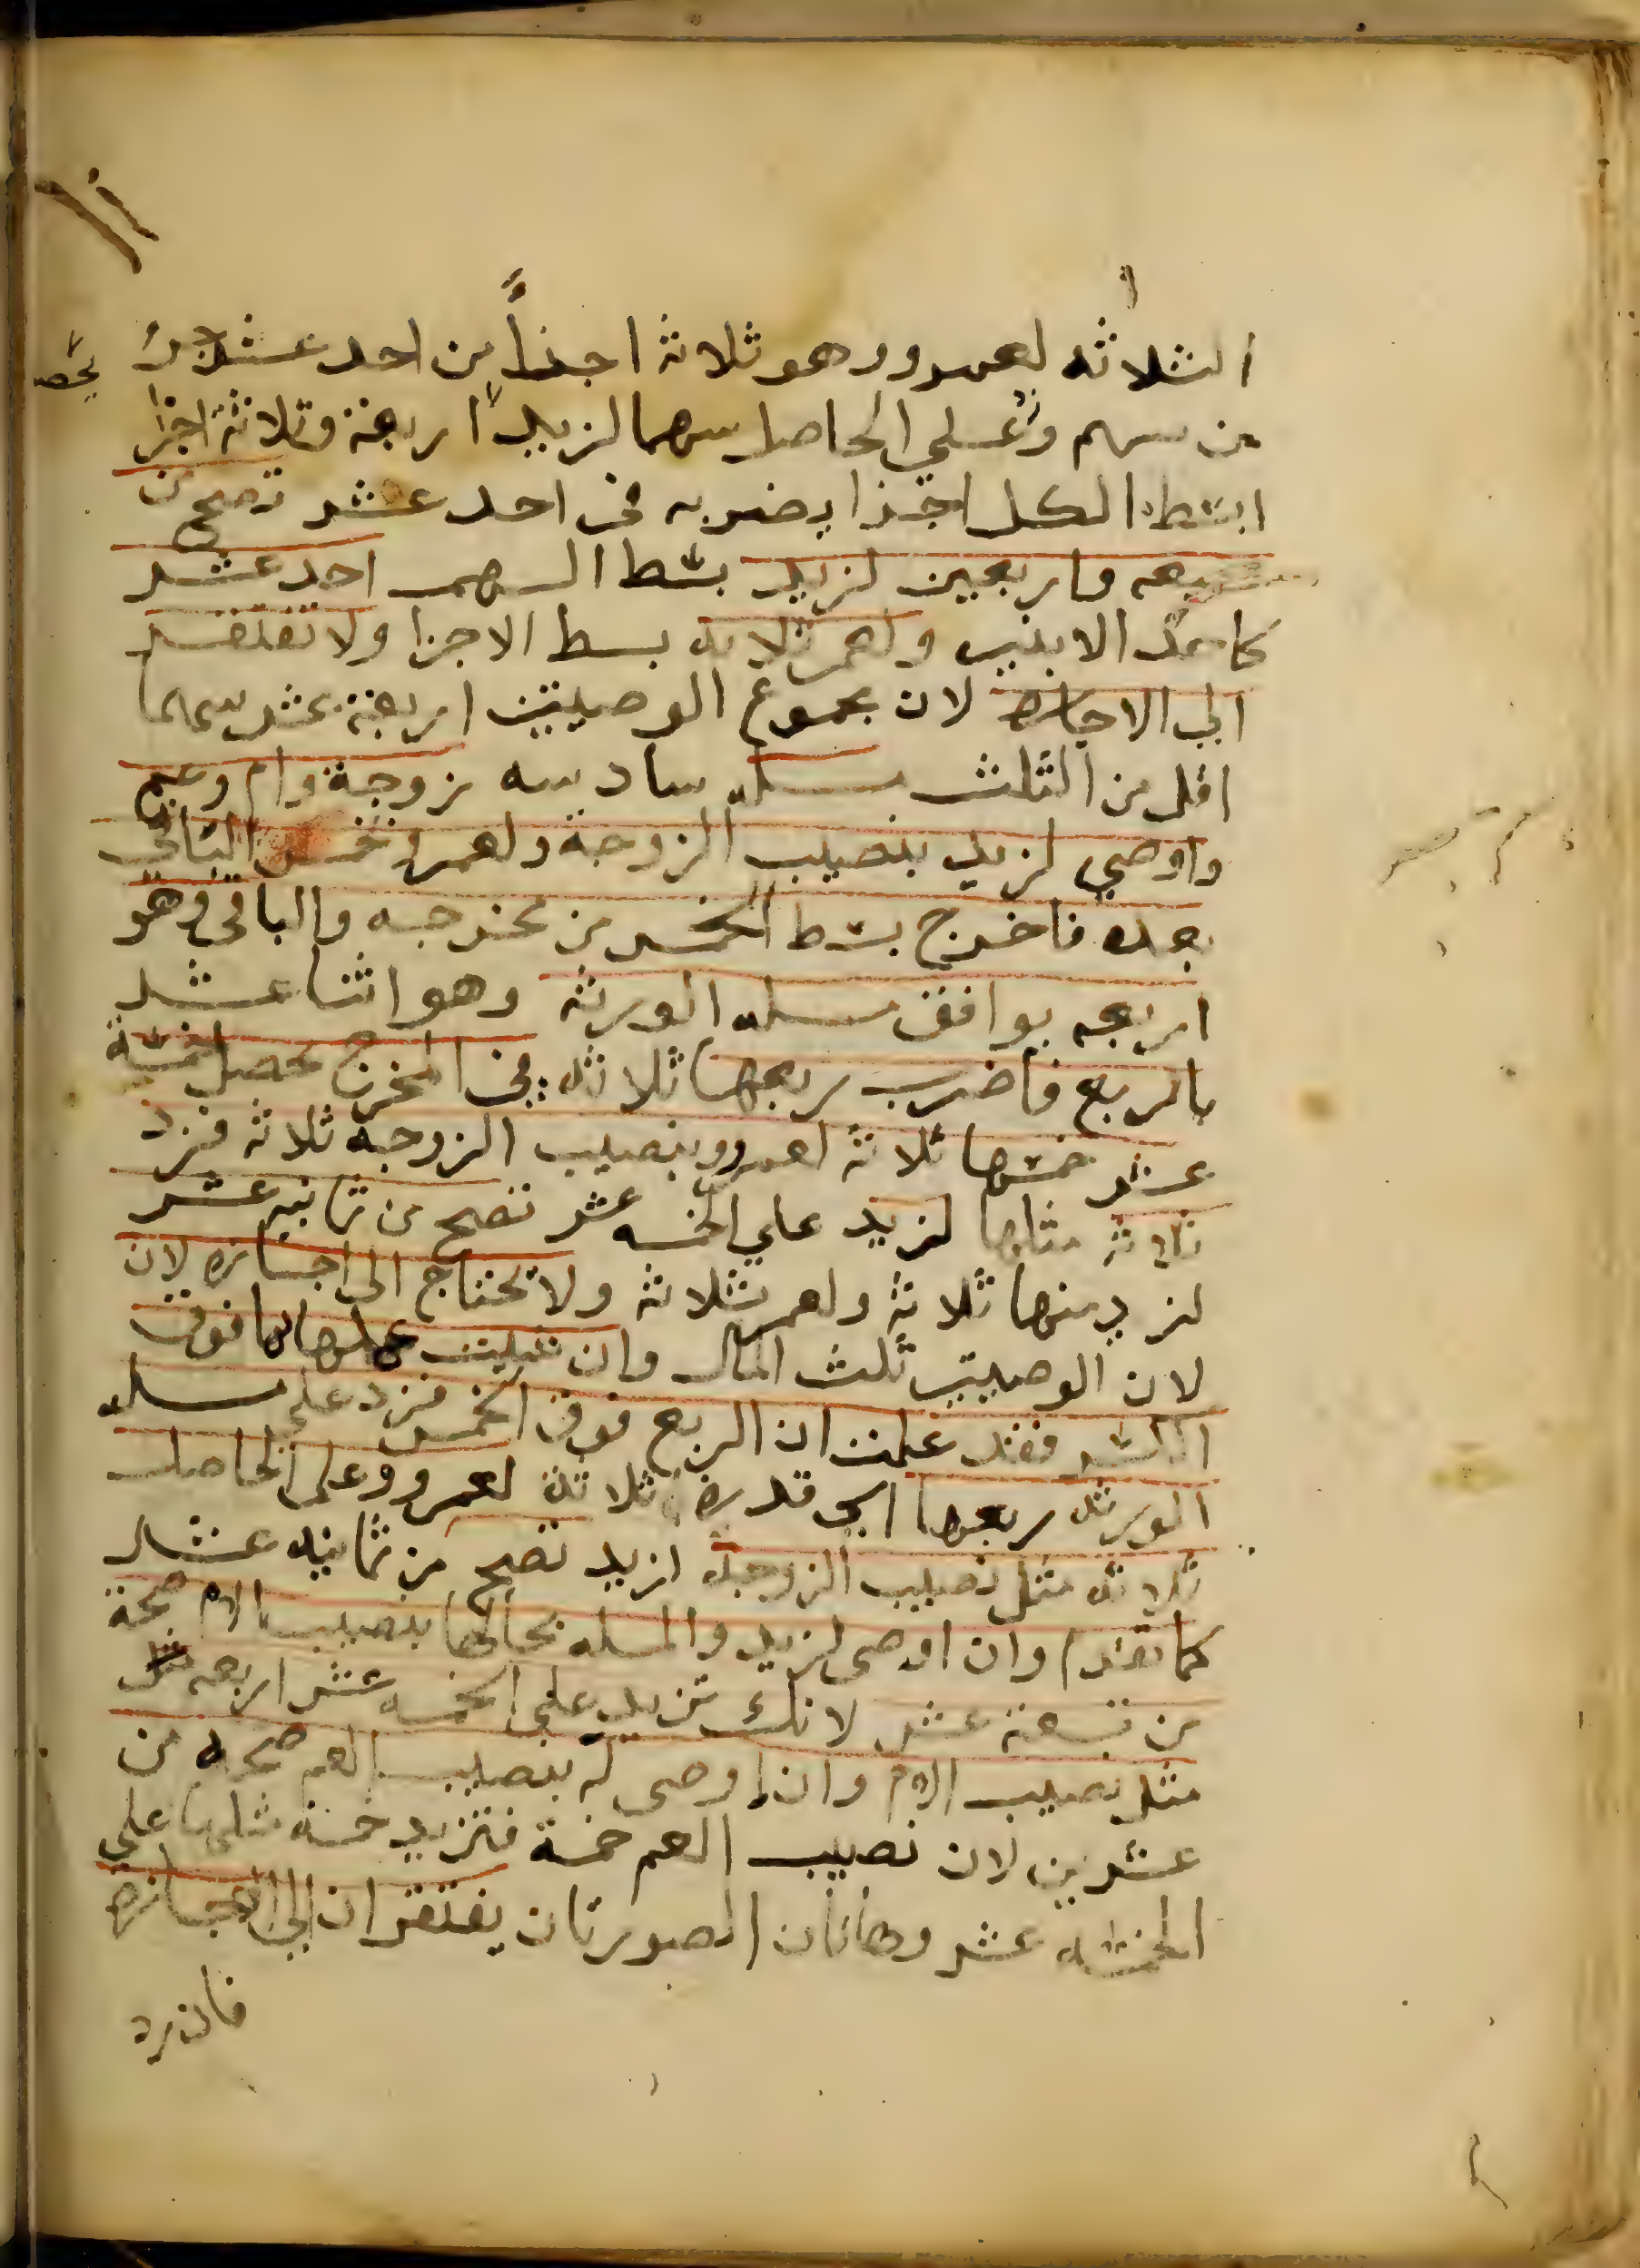 الثلاثه لعمرو وهو ثلاثة اجزاً من احد عشر جزءً يحصل
من سهم وعلي الحاصل سهما لزيد اربعة وثلاثة اجزا
ابسط الكل اجزا بضربه في احد عشر تصح من
سبعه واربعين لزيد بسط السهم احد عشر
كاحد الابنين ولعمرو ثلاثه بسط الاجزا ولا تفتقر
الي الاجازه لان مجموع الوصيتين اربعة عشر سهما
اقل من الثلث مسله سادسه زوجة وام وعم
واوصي لزيد بنصيب الزوجة ولعمرو بخمس الباقي
بعده فاخرج بسط الخمس من مخرجه والباقي وهو
اربعه يوافق مسله الورثه وهو اثنا عشر
بالربع فاضرب ربعها ثلاثه في المخرج يحصل خمسة
عشر خمسها ثلاثة لعمرو ونصيب الزوجه ثلاثة فزد
ثلاثة مثلها لزيد علي الخمسه عشر تصح من ثمانيه عشر
لزيد منها ثلاثة ولعمرو ثلاثة ولا تحتاج الى اجازه لان
لان الوصيتين ثلث المال وان شيت عملها بما فوق
الكسر فقد علمت ان الربع فوق الخمس فزد على مسله
الورثه ربعها اي قدره ثلاثة لعمرو وعلى الحاصل
ثلاثه مثل نصيب الزوجه لزيد تصح من ثمانيه عشر
كما تقدم وان اوصى لزيد والمسله بحالها بنصيب الام صحة
من تسعة عشر لانك تزيد علي الخمسه عشر اربعه مثل
مثل نصيب الام وان اوصى له بنصيب العم صحه من
عشرين لان نصيب العم خمسة فتزيد خمسة مثلها على
الخمسه عشر وهاتان الصورتان يفتقران الي الاجازه
فان رد